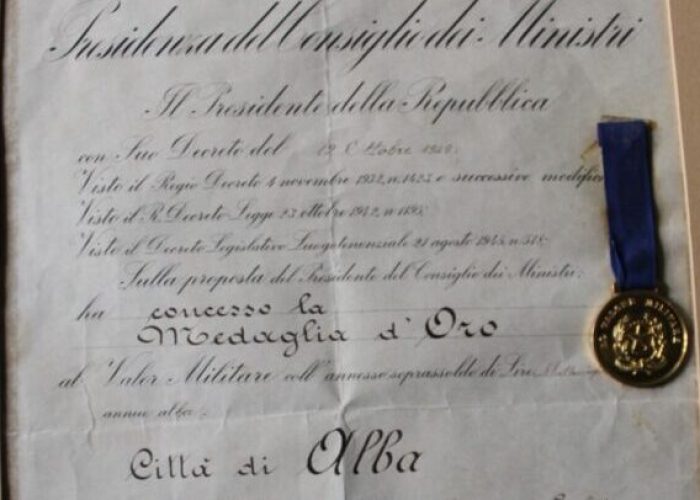 Presidenza del Consiglio dei Ministri
Il Presidente della Repubblica
con Suo Decreto del
Visto il Regio Decreto 4 novembre 1932, n. 1423 e successive modifica
Visto il R. Decreto Legge 23 ottobre 1942, n. 1195;
Visto il Decreto Legislativo Luogotenenziale 21 agosto 1945, n. 518;
Sulla proposta del Presidente del Consiglio dei Ministri:
ha concesso la
Medaglia d'Oro
al Valor Militare coll'annesso soprassoldo di Lire
annue alla:
Città di Alba
AL VALORE MILITARE